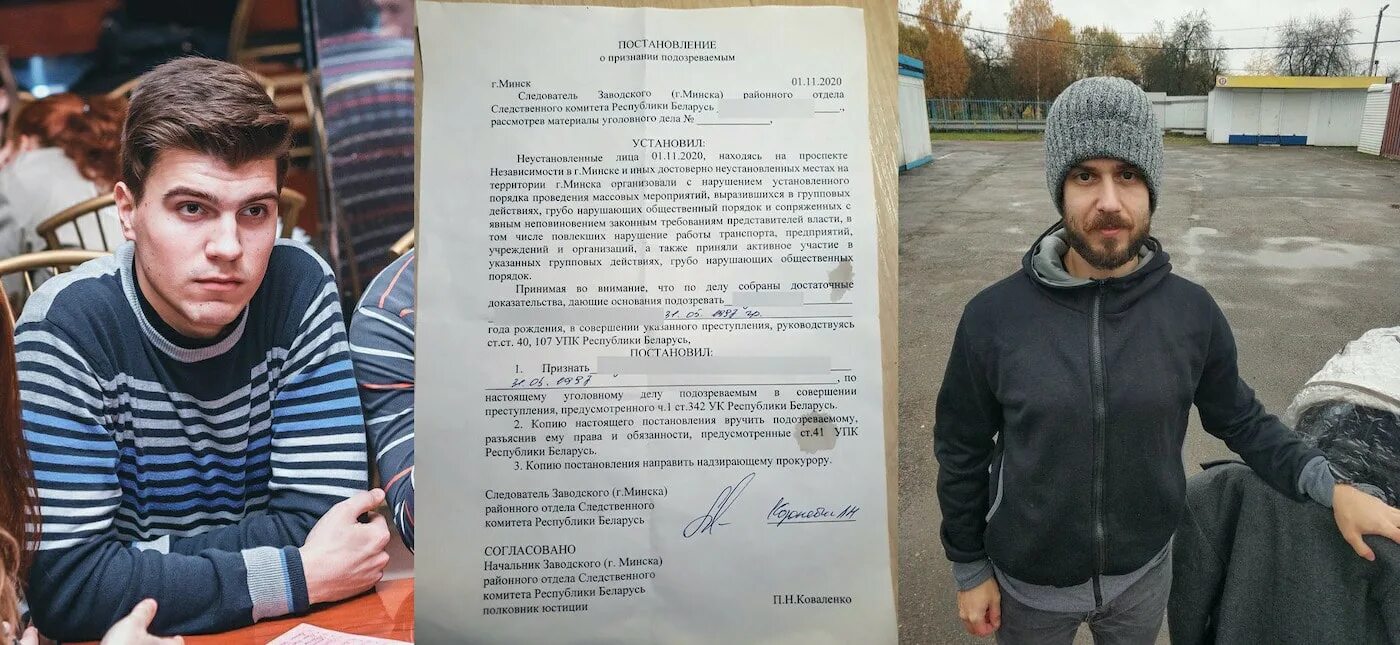 ПОСТАНОВЛЕНИЕ
о признании подозреваемым
г.Минск 01.11.2020
Следователь Заводского (г.Минска) районного отдела
Следственного комитета Республики Беларусь
рассмотрев материалы уголовного дела №
УСТАНОВИЛ:
Неустановленные лица 01.11.2020, находясь на проспекте
Независимости в г.Минске и иных достоверно неустановленных местах на
территории г.Минска организовали с нарушением установленного
порядка проведения массовых мероприятий, выразившихся в групповых
действиях, грубо нарушающих общественный порядок и сопряженных с
явным неповиновением законным требованиям представителей власти, в
том числе повлекших нарушение работы транспорта, предприятий,
учреждений и организаций, а также приняли активное участие в
указанных групповых действиях, грубо нарушающих общественных
порядок.
Принимая во внимание, что по делу собраны достаточные
доказательства, дающие основания подозревать
31.05.1997 гр.
года рождения, в совершении указанного преступления, руководствуясь
ст.ст. 40, 107 УПК Республики Беларусь,
ПОСТАНОВИЛ:
1. Признать
31.05.1997, по
настоящему уголовному делу подозреваемым в совершении
преступления, предусмотренного ч.1 ст.342 УК Республики Беларусь.
2. Копию настоящего постановления вручить подозреваемому,
разъяснив ему права и обязанности, предусмотренные ст.41 УПК
Республики Беларусь.
3. Копию постановления направить надзирающему прокурору.
Следователь Заводского (г.Минска)
районного отдела Следственного
комитета Республики Беларусь
СОГЛАСОВАНО
Начальник Заводского (г. Минска)
районного отдела Следственного
комитета Республики Беларусь
полковник юстиции П.Н.Коваленко